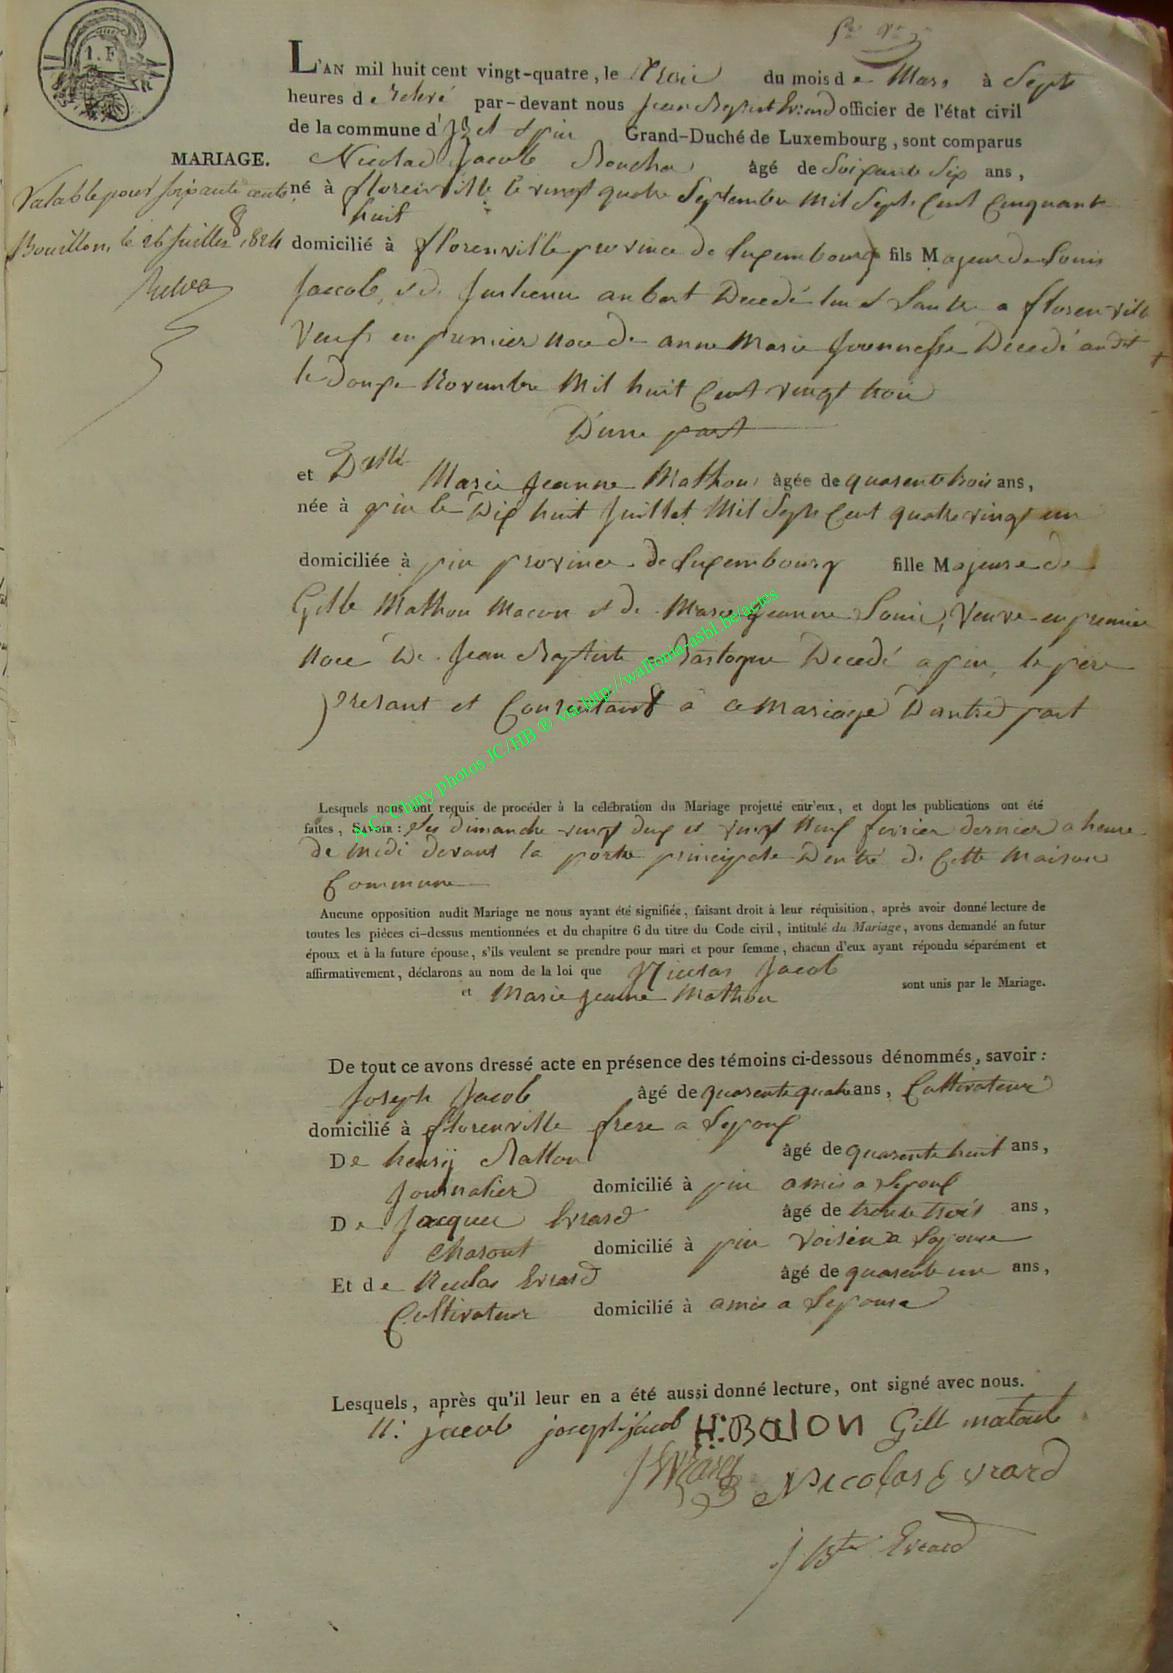 1. F
L'AN mil huit cent vingt-quatre, le trois du mois de Mars à Sept
heures de relevé par-devant nous Jean Baptist Evrard officier de l'état civil
de la commune d'Izel et pin Grand-Duché de Luxembourg, sont comparus
MARIAGE.
Nicolas Jacob âgé de Soixante Six ans,
Valable pour soixante cents
né à florenville le vingt quatre Septembre Mil Sept Cent Cinquante
huit
Bouillon, le 26 Juillet 1824
domicilié à florenville province de Luxembourg fils Majeur de Louis
Jacob, et de aubert Decedé a florenville
Veuf en premier noce de anne Marie Decedé audit
le Douze Novembre Mil huit Cent vingt trois
D'une part
et Dlle Marie Jeanne Mathou âgée de quarente trois ans,
née à pin le Dix huit Juillet Mil Sept Cent quatre vingt un
domiciliée à pin province de Luxembourg fille Majeure de
Gille Mathou Macon et de Marie Jeanne Louis, Veuve en premier
Noce De Jean Baptiste Bastogne Decedé a pin, le père
present et Consentant à ce Mariage D'autre part
A.C. Chiny photos JC/HB ® via http://wallonia-asbl.be/actes
Lesquels nous ont requis de procéder à la célébration du Mariage projetté entr'eux, et dont les publications ont été
faites, SAVOIR: Les Dimanche vingt deux et vingt Neuf fevrier dernier a heure
de Midi devant la porte principale D'entré de Cette Maison
Commune
Aucune opposition audit Mariage ne nous ayant été signifiée, faisant droit à leur réquisition, après avoir donné lecture de
toutes les pièces ci-dessus mentionnées et du chapitre 6 du titre du Code civil, intitulé du Mariage, avons demandé au futur
époux et à la future épouse, s'ils veulent se prendre pour mari et pour femme, chacun d'eux ayant répondu séparément et
affirmativement, déclarons au nom de la loi que Nicolas Jacob
et Marie Jeanne Mathou sont unis par le Mariage.
De tout ce avons dressé acte en présence des témoins ci-dessous dénommés, savoir:
Joseph Jacob âgé de quarente quatre ans, Cultivateur
domicilié à florenville frere a Lepoux
De henry Ballon âgé de quarente huit ans,
Journalier domicilié à pin amis a Lepoux
De Jacques Evrard âgé de trente trois ans,
domicilié à pin Voisin a Lepouse
Et de Nicolas Evrard âgé de quarente un ans,
Cultivateur domicilié à amis a Lepouse
Lesquels, après qu'il leur en a été aussi donné lecture, ont signé avec nous.
N: jacob joseph jacob H:BalON Gill
J Evrard Nicolas Evrard
J Bte Evrard